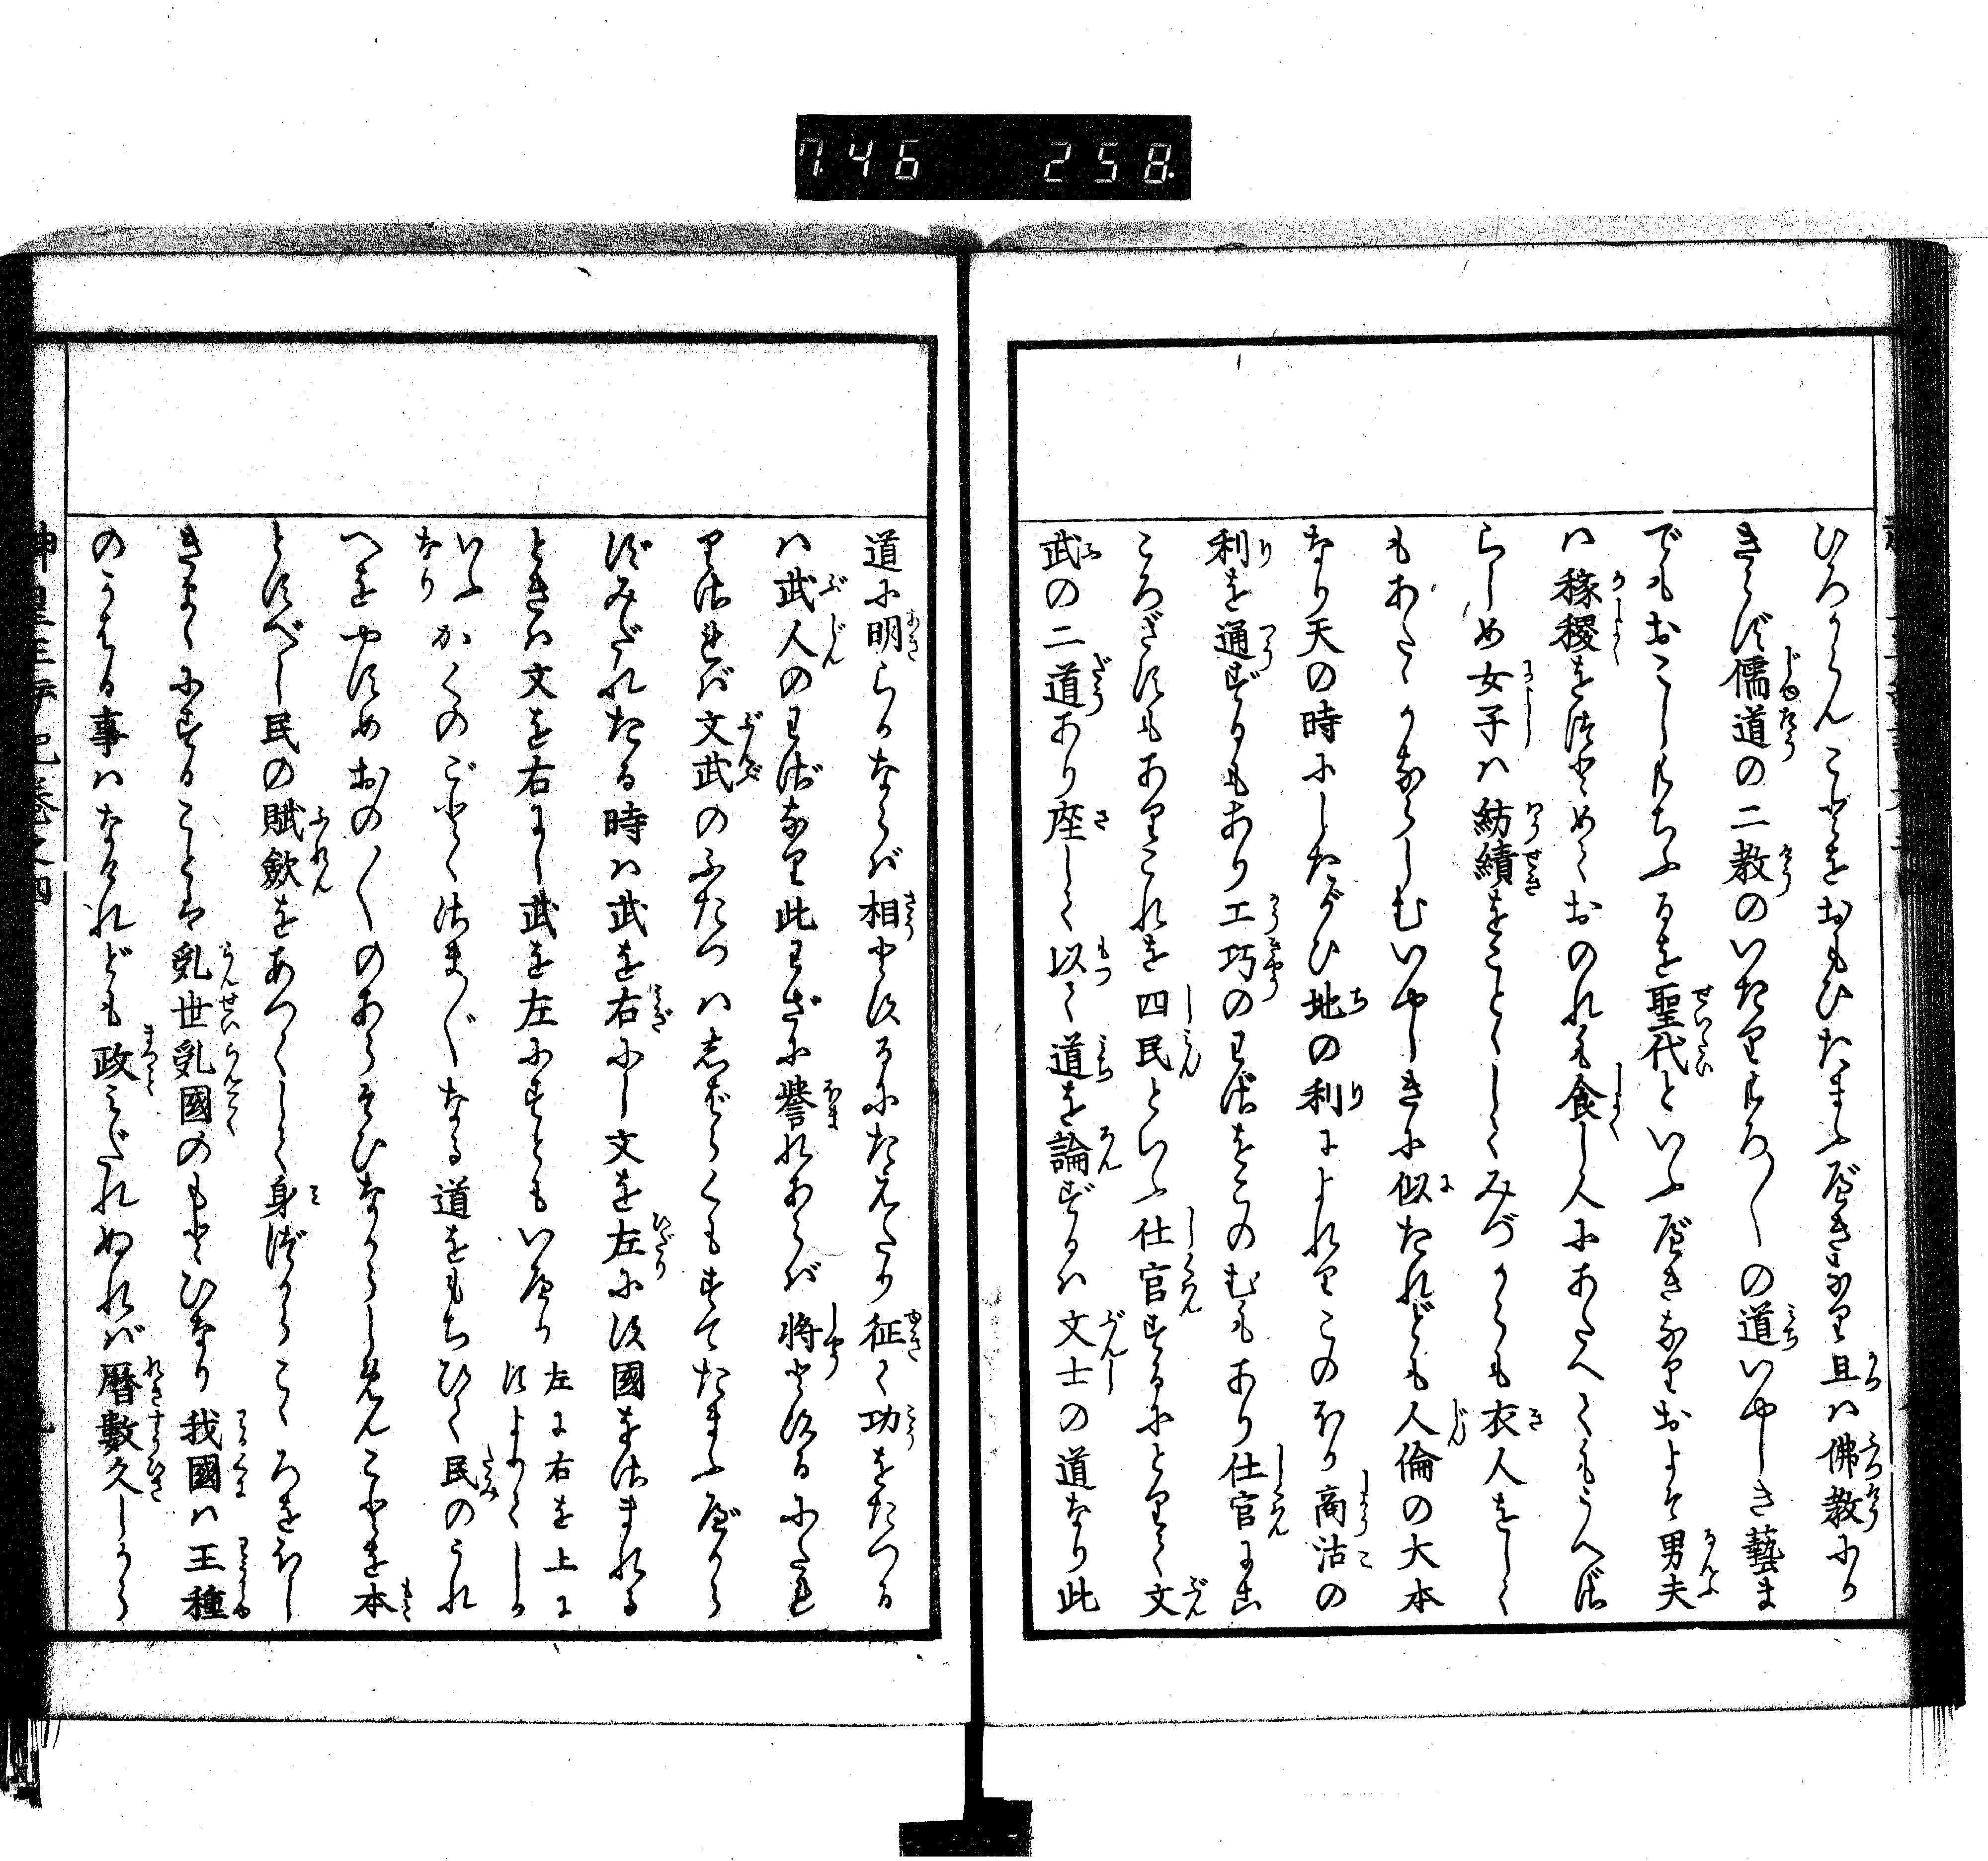 7.46 258.
ひろからんことをおもひたまふべきなり且は佛教にか
きらず儒道の二教のいたりもろ〳〵の道いやしき藝ま
でもおこしもちふるを聖代といふべきなりおよそ男夫
ハ稼穡をつとめておのれも食し人にあたへてもうへず
らしめ女子ハ紡績をことゝしてみづからも衣人をしく
もあたゝかならしむいやしきに似たれども人倫の大本
なり天の時にしたがひ地の利によれりこのほか商沽の
利を通ずるもあり工巧のわざをこのむもあり仕官に
ころざすもありこれを四民といふ仕官するにとりて文
武の二道あり座して以て道を論ずるハ文士の道なり此
道に明らかならバ相とするにたえたり征て功をたつる
ハ武人のわざなり此わざに誉れあらバ将とするにたれ
りされバ文武のふたつハしばらくもすてたまふべから
ずみだれたる時ハ武を右にし文を左にす國をさまれる
ときハ文を右にし武を左にすともいへり 左に右を上に
すよりてしか
いふ
なり かくのごとくさま〴〵なる道をもちひて民のうれ
へをやすめおの〳〵のあらそひなからしめんことを本
とすべし民の賦歛をあつくしてみづからこゝろをほし
きまゝにすることハ乱世乱國のもとひなり我國ハ王種
のかはる事ハなけれども政みだれぬれバ暦數久しから